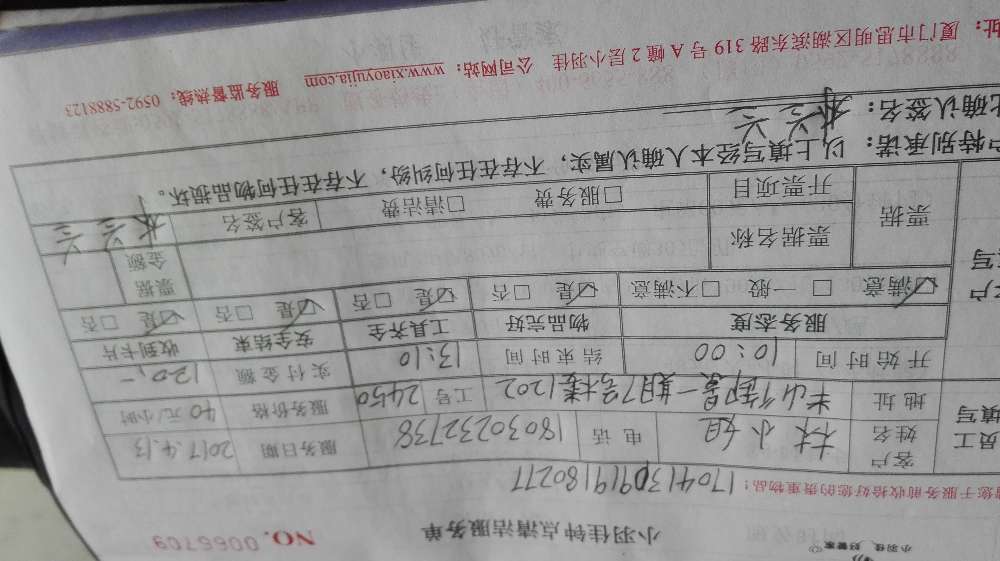 小羽佳 好管家
小羽佳钟点清洁服务单 NO. 0066709
您于服务前收拾好您的贵重物品: 17041309191180277
员工填写 客户姓名 林小姐 电话 18030232738 服务日期 2017.4.13
地址 半山御景一期7号楼1202 工号 2450 服务价格 40元/小时
开始时间 10:00 结束时间 13:10 实付金额 120.-
服务态度 物品完好 工具齐全 安全结束 收到卡片
☑满意 □一般 □不满意 ☑是 □否 ☑是 □否 ☑是 □否 ☑是 □否
票据 票据名称 票据金额
开票项目 □服务费 □清洁费 客户签名
特别承诺: 以上填写经本人确认属实,不存在任何纠纷,不存在任何物品损坏。
确认签名:
厦门市思明区湖滨东路 319 号 A 幢 2 层小羽佳 公司网站: www.xiaoyujia.com 服务监督热线: 0592-5888123